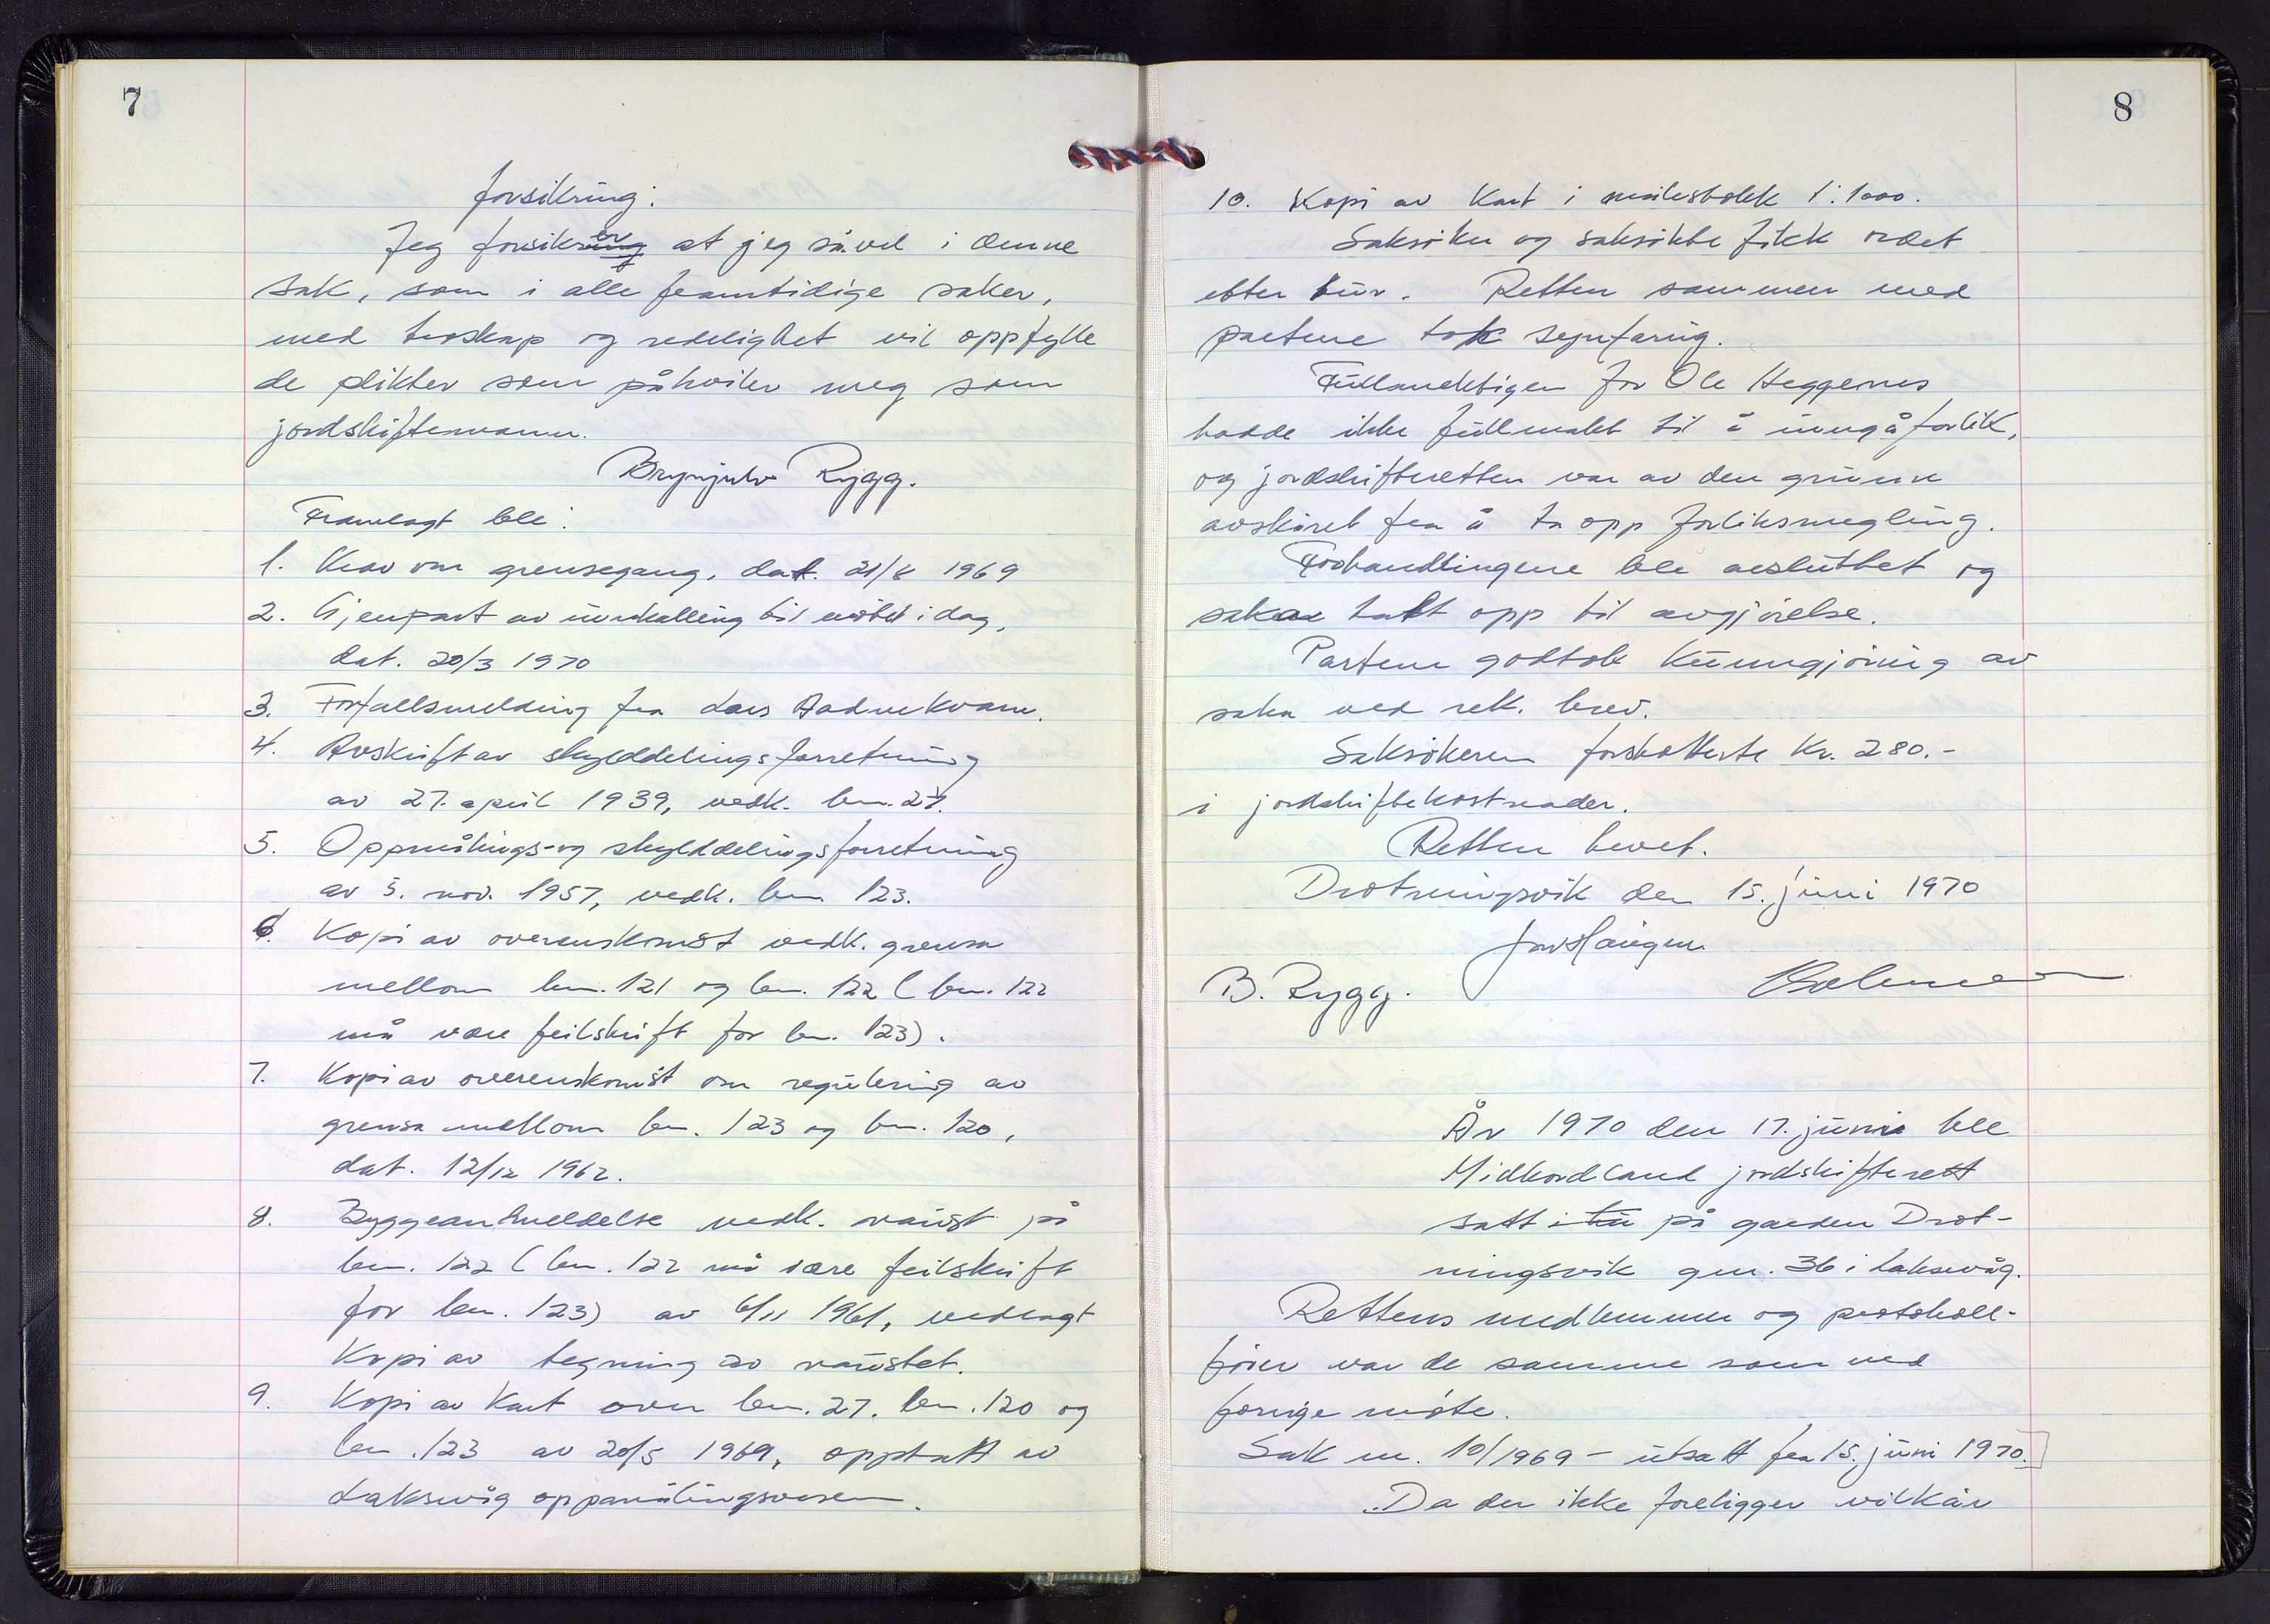 7
forsikring:
Jeg forsikrer at jeg såvel i denne
sak, som i alle framtidige saker,
med troskap og redelighet vil oppfylle
de plikter som påhviler meg som
jordskiftemann.
Brynjulv Rygg.
Framlagt ble:
1. Krav om grensegang, dat. 21/8 1969
2. Gjenpart av innkalling til møtet i dag,
dat. 20/3 1970
3. Forfallsmelding fra Lars Aadnekvam.
4. Avskrift av skylddelingsforretning
av 27. april 1939, vedk. bn. 27.
5. Oppmålings- og skylddelingsforretning
av 5. nov. 1957, vedk. bn. 123.
6. Kopi av overenskomst vedk. grensa
mellom bn. 121 og bn. 122 (bn. 122
må være feilskrift for bn. 123).
7. Kopi av overenskomst om regulering av
grensa mellom bn. 123 og bn. 120,
dat. 12/12 1962.
8. Byggeanmeldelse vedk. naust på
bn. 122 (bn. 122 må være feilskrift
for bn. 123) av 6/11 1961, vedlagt
Kopi av tegning av naustet.
9. Kopi av Kart over bn. 27. bn. 120 og
bn. 123 av 20/5 1969, opptatt av
Laksevåg oppmålingsvesen.
8
10. Kopi av Kart i målestokk 1:1000.
Saksøker og saksøkte fikk ordet
etter tur. Retten sammen med
partene tok synfaring.
Fullmektigen for Ole Heggernes
hadde ikke fullmakt til å inngå forlik,
og jordskifteretten var av den grunn
avskåret fra å ta opp forliksmegling.
Forhandlingene ble avsluttet og
saka tatt opp til avgjørelse.
Partene godtok Kunngjøring av
saka ved rek. brev.
Saksøkeren forskotterte Kr. 280.-
i jordskiftekostnader.
Retten hevet.
Drotningsvik den 15. juni 1970
B. Rygg.
År 1970 den 17. juni ble
Midhordland jordskifterett
satt i tu på garden Drot-
ningsvik gnr. 36 i Laksevåg.
Rettens medlemmer og protokoll-
fører var de samme som ved
forrige møte.
Sak nr. 10/1969 - utsatt fra 15. juni 1970.
Da der ikke foreligger vilkår